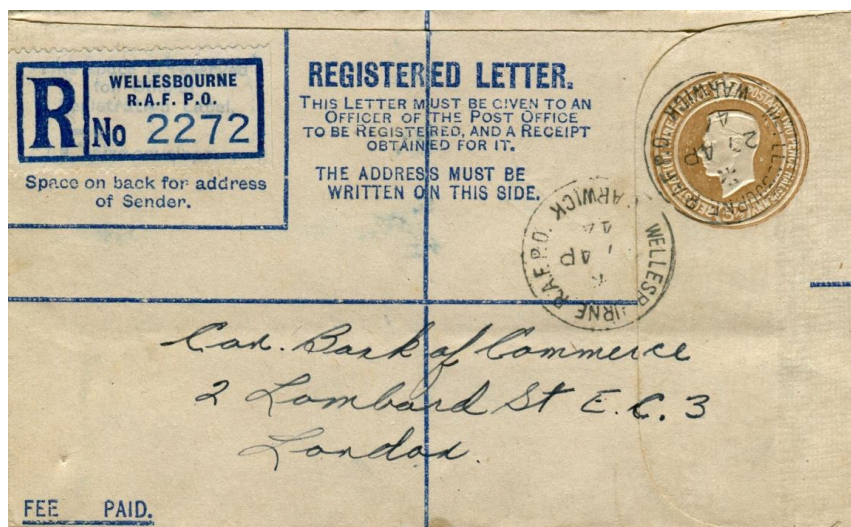 R
WELLESBOURNE
R.A.F. P.O.
No 2272
Space on back for address
of Sender.
REGISTERED LETTER.
THIS LETTER MUST BE GIVEN TO AN
OFFICER OF THE POST OFFICE
TO BE REGISTERED, AND A RECEIPT
OBTAINED FOR IT.
THE ADDRESS MUST BE
WRITTEN ON THIS SIDE.
WELLESBOURNE R.A.F. P.O.
WARWICK
AP
44
WELLESBOURNE R.A.F. P.O.
WARWICK
AP
Can. Bank of Commerce
2 Lombard St E.C. 3
London
FEE PAID.